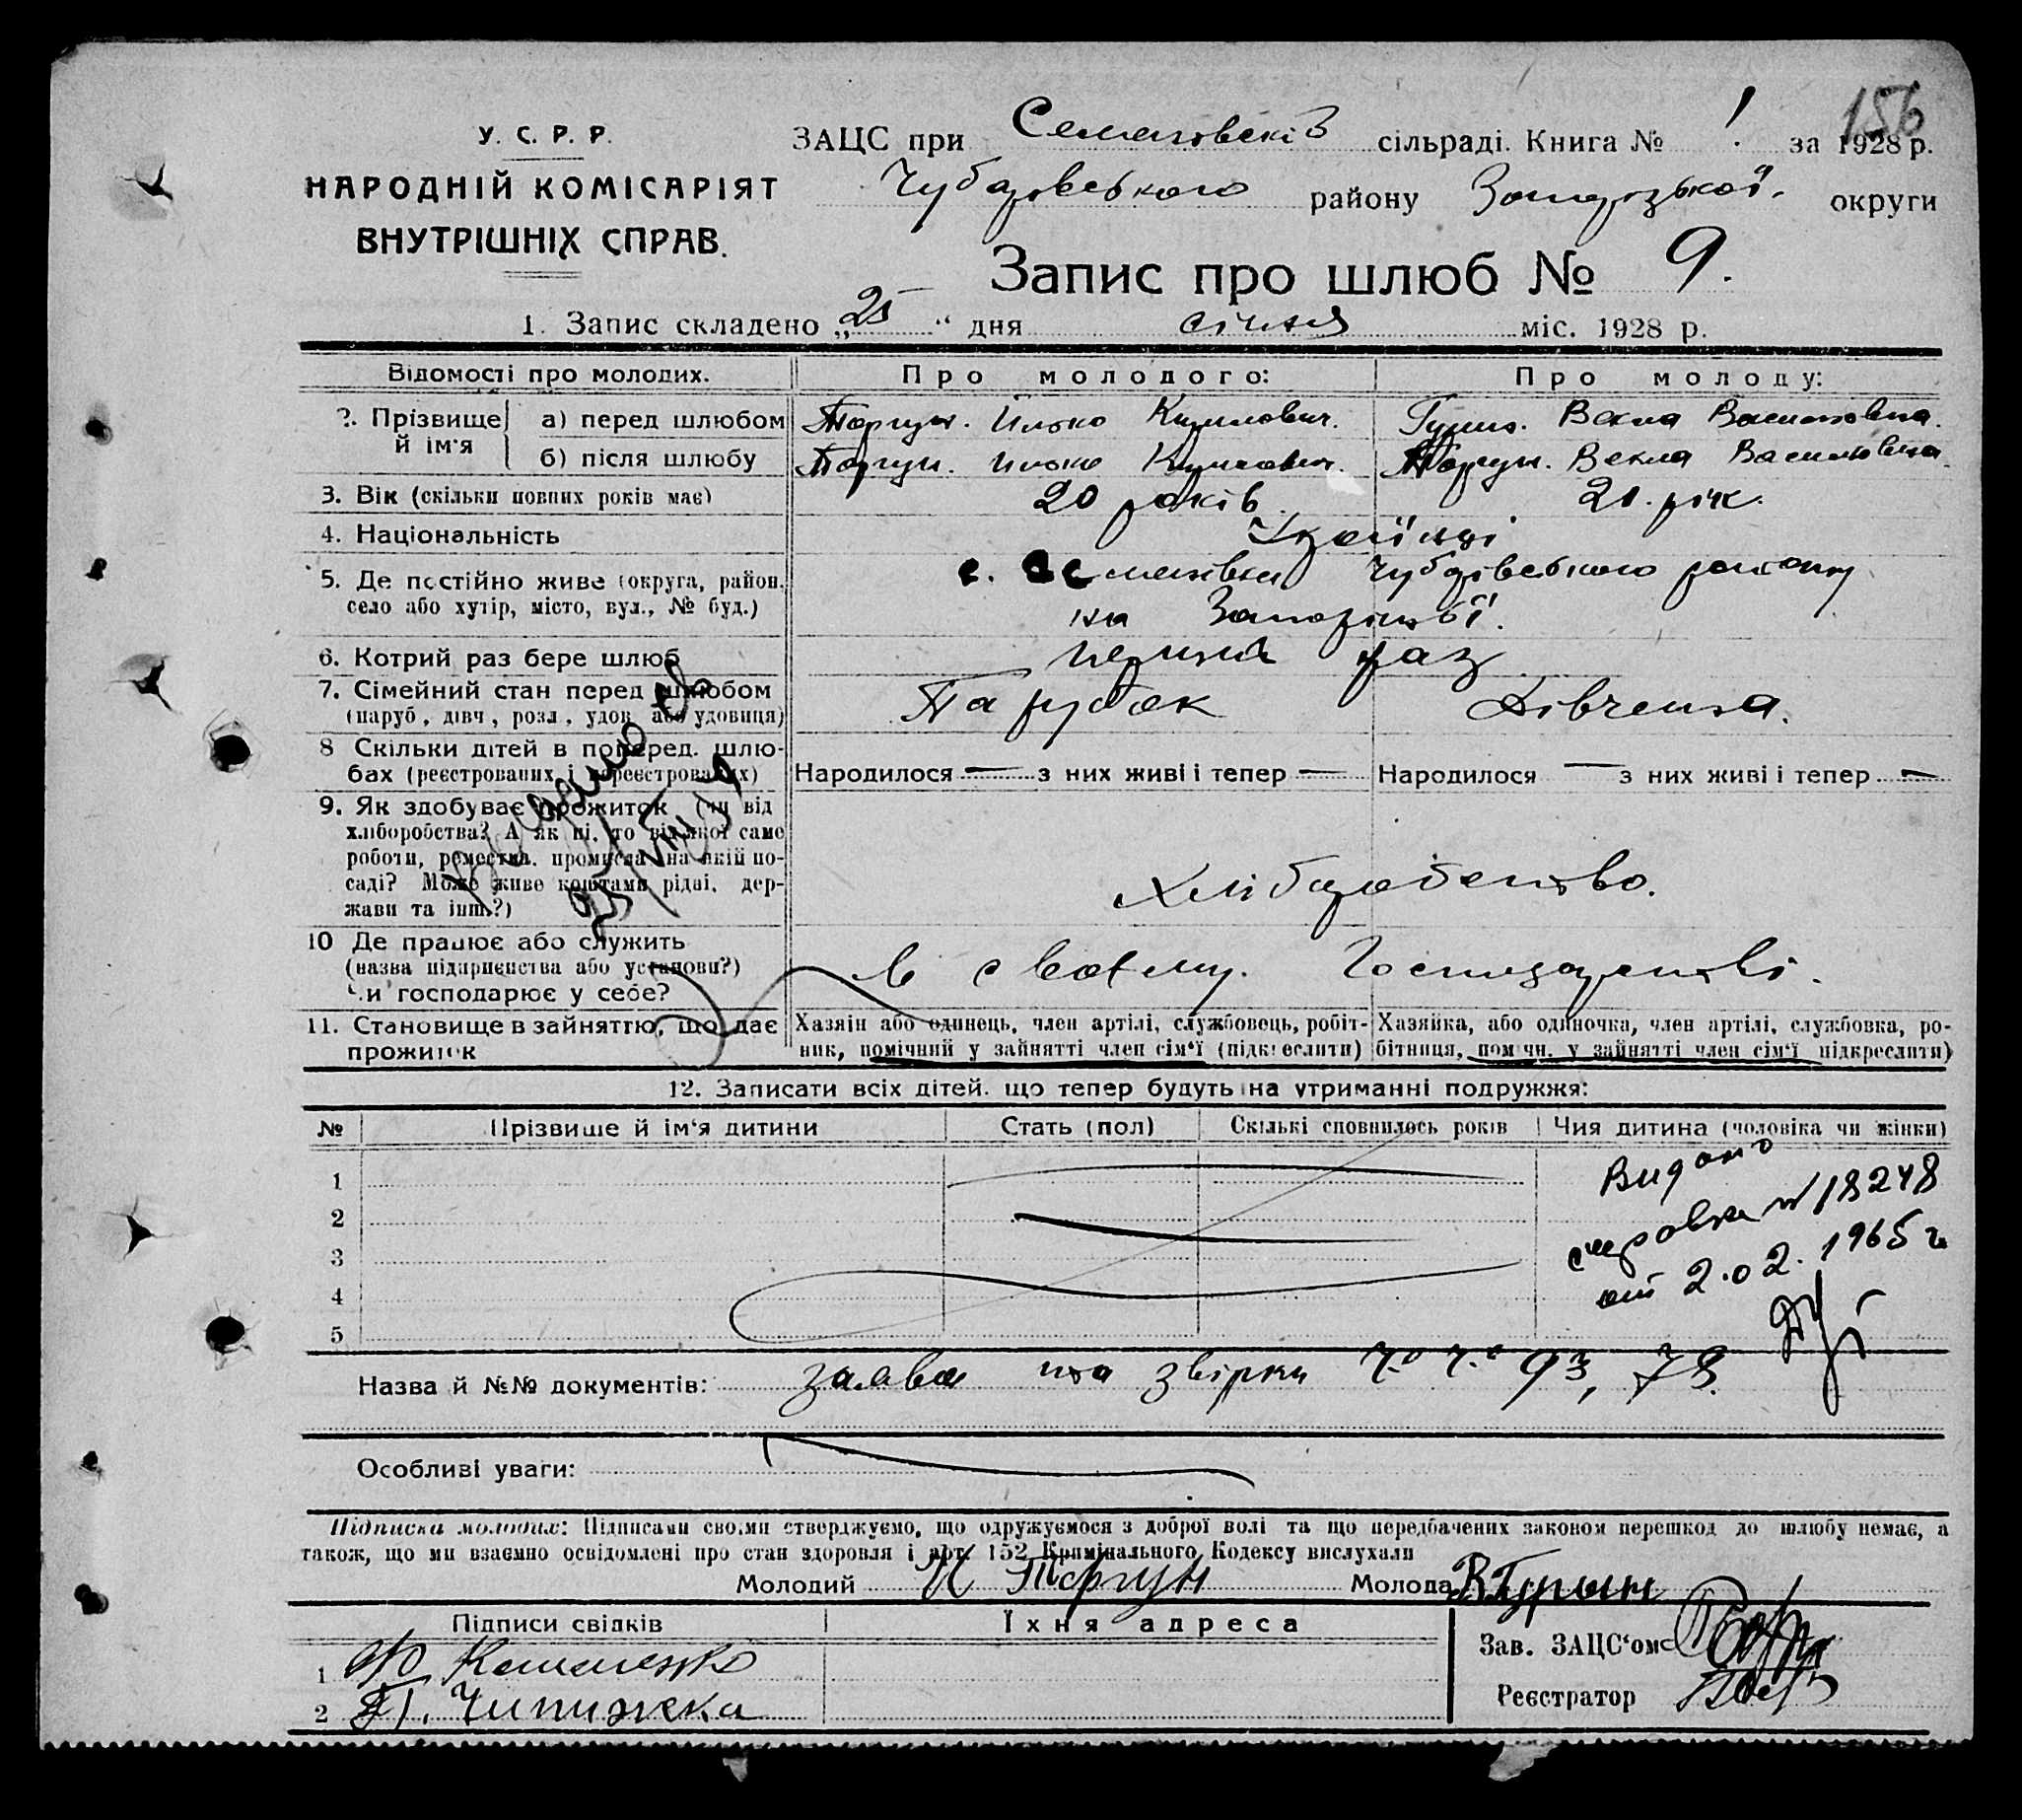 156
У. С. Р. Р.
НАРОДНІЙ КОМІСАРІЯТ
ВНУТРІШНІХ СПРАВ.
ЗАЦС при Семенівській сільраді. Книга № 1. за 1928 р.
Чубарівського району Запорізької округи
Запис про шлюб № 9.
1. Запис складено „25“ дня січня міс. 1928 р.
Відомості про молодих. Про молодого: Про молоду:
2. Прізвище й ім'я а) перед шлюбом Таргун. Илько Кирилович. Гуриш. Векла Василівна.
б) після шлюбу Таргун. Илько Кирилович. Таргун. Векла Василівна.
3. Вік (скільки повних років має) 20 років. 21. рік.
4. Національність Українці
5. Де постійно живе (округа, район, с. Семенівка Чубарівського району
село або хутір, місто, вул., № буд.) на Запоріжжі.
6. Котрий раз бере шлюб перший раз
7. Сімейний стан перед шлюбом Парубок Дівчина.
(паруб, дівч, розл, удов. або удовиця)
8 Скільки дітей в поперед. шлю-
бах (реєстрованих і нереєстрованих) Народилося — з них живі і тепер — Народилося — з них живі і тепер —
9. Як здобуває прожиток (чи від
хліборобства? А як ні, то від якої саме
роботи, ремества, промисла, на якій по-
саді? Може живе коштами рідні, дер- Хліборобство.
жави та інш.?)
10 Де працює або служить
(назва підприємства або установи?) В своєму. Господарстві.
Чи господарює у себе?
11. Становище в зайняттю, що дає Хазяїн або одинець, член артілі, службовець, робіт- Хазяйка, або одиночка, член артілі, службовка, ро-
прожиток ник, помічний у зайнятті член сім'ї (підкреслити) бітниця, поміч. у зайнятті член сім'ї підкреслити)
12. Записати всіх дітей. що тепер будуть на утриманні подружжя:
№ Прізвище й ім'я дитини Стать (пол) Скількі сповнилось років Чия дитина (чоловіка чи жінки)
1
2
3
4
5
Видано
справка № 18248
от 2.02.1965 г
Назва й №№ документів: заява та звірки Ч.о Ч.о 93, 78.
Особливі уваги:
Підписка молодих: Підписами своїми стверджуємо, що одружуємося з доброї волі та що передбачених законом перешкод до шлюбу немає, а
також, що ми взаємно освідомлені про стан здоровля і арт. 152 Кримінального Кодексу вислухали
Молодий И Таргун Молода В Гурыш
Підписи свідків Їхня адреса
1 Ф Кошменко Зав. ЗАЦС'ом
2 П. Чипижека Реєстратор